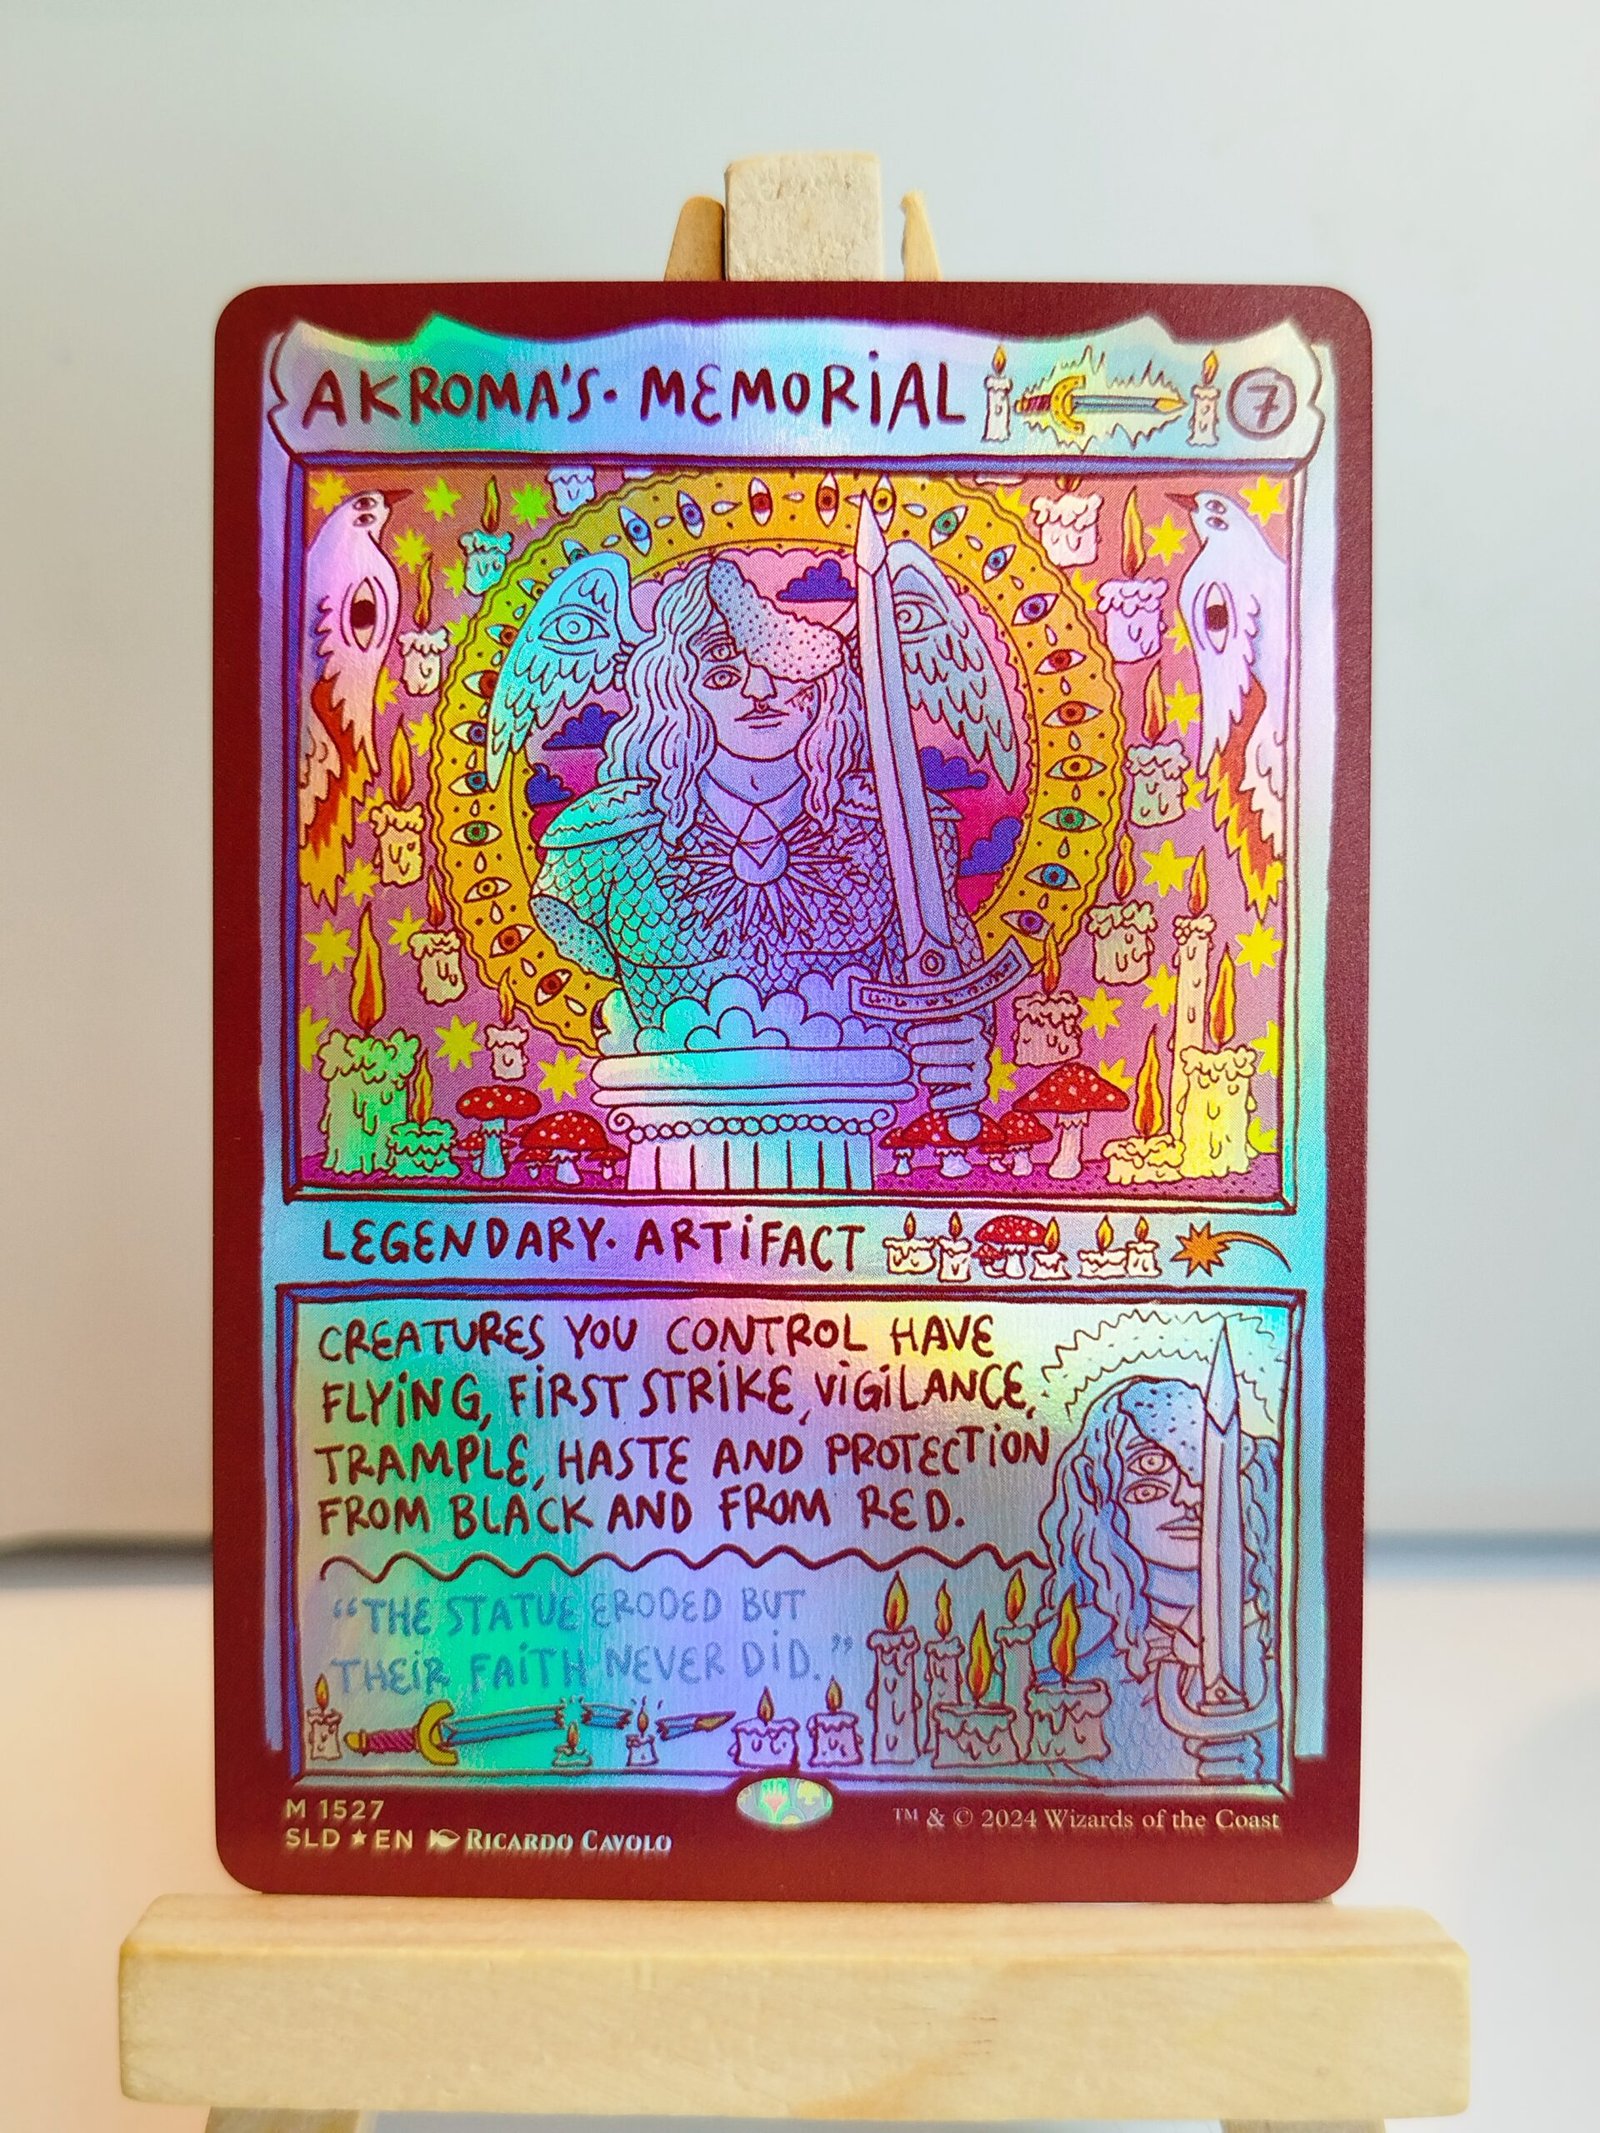 AKROMA'S· MEMORIAL 7
LEGENDARY· ARTIFACT
CREATURES YOU CONTROL HAVE
FLYING, FIRST STRIKE, VIGILANCE,
TRAMPLE, HASTE AND PROTECTION
FROM BLACK AND FROM RED.
“THE STATUE ERODED BUT
THEIR FAITH NEVER DID.”
M 1527
SLD ★ EN RICARDO CAVOLO
™ & © 2024 Wizards of the Coast